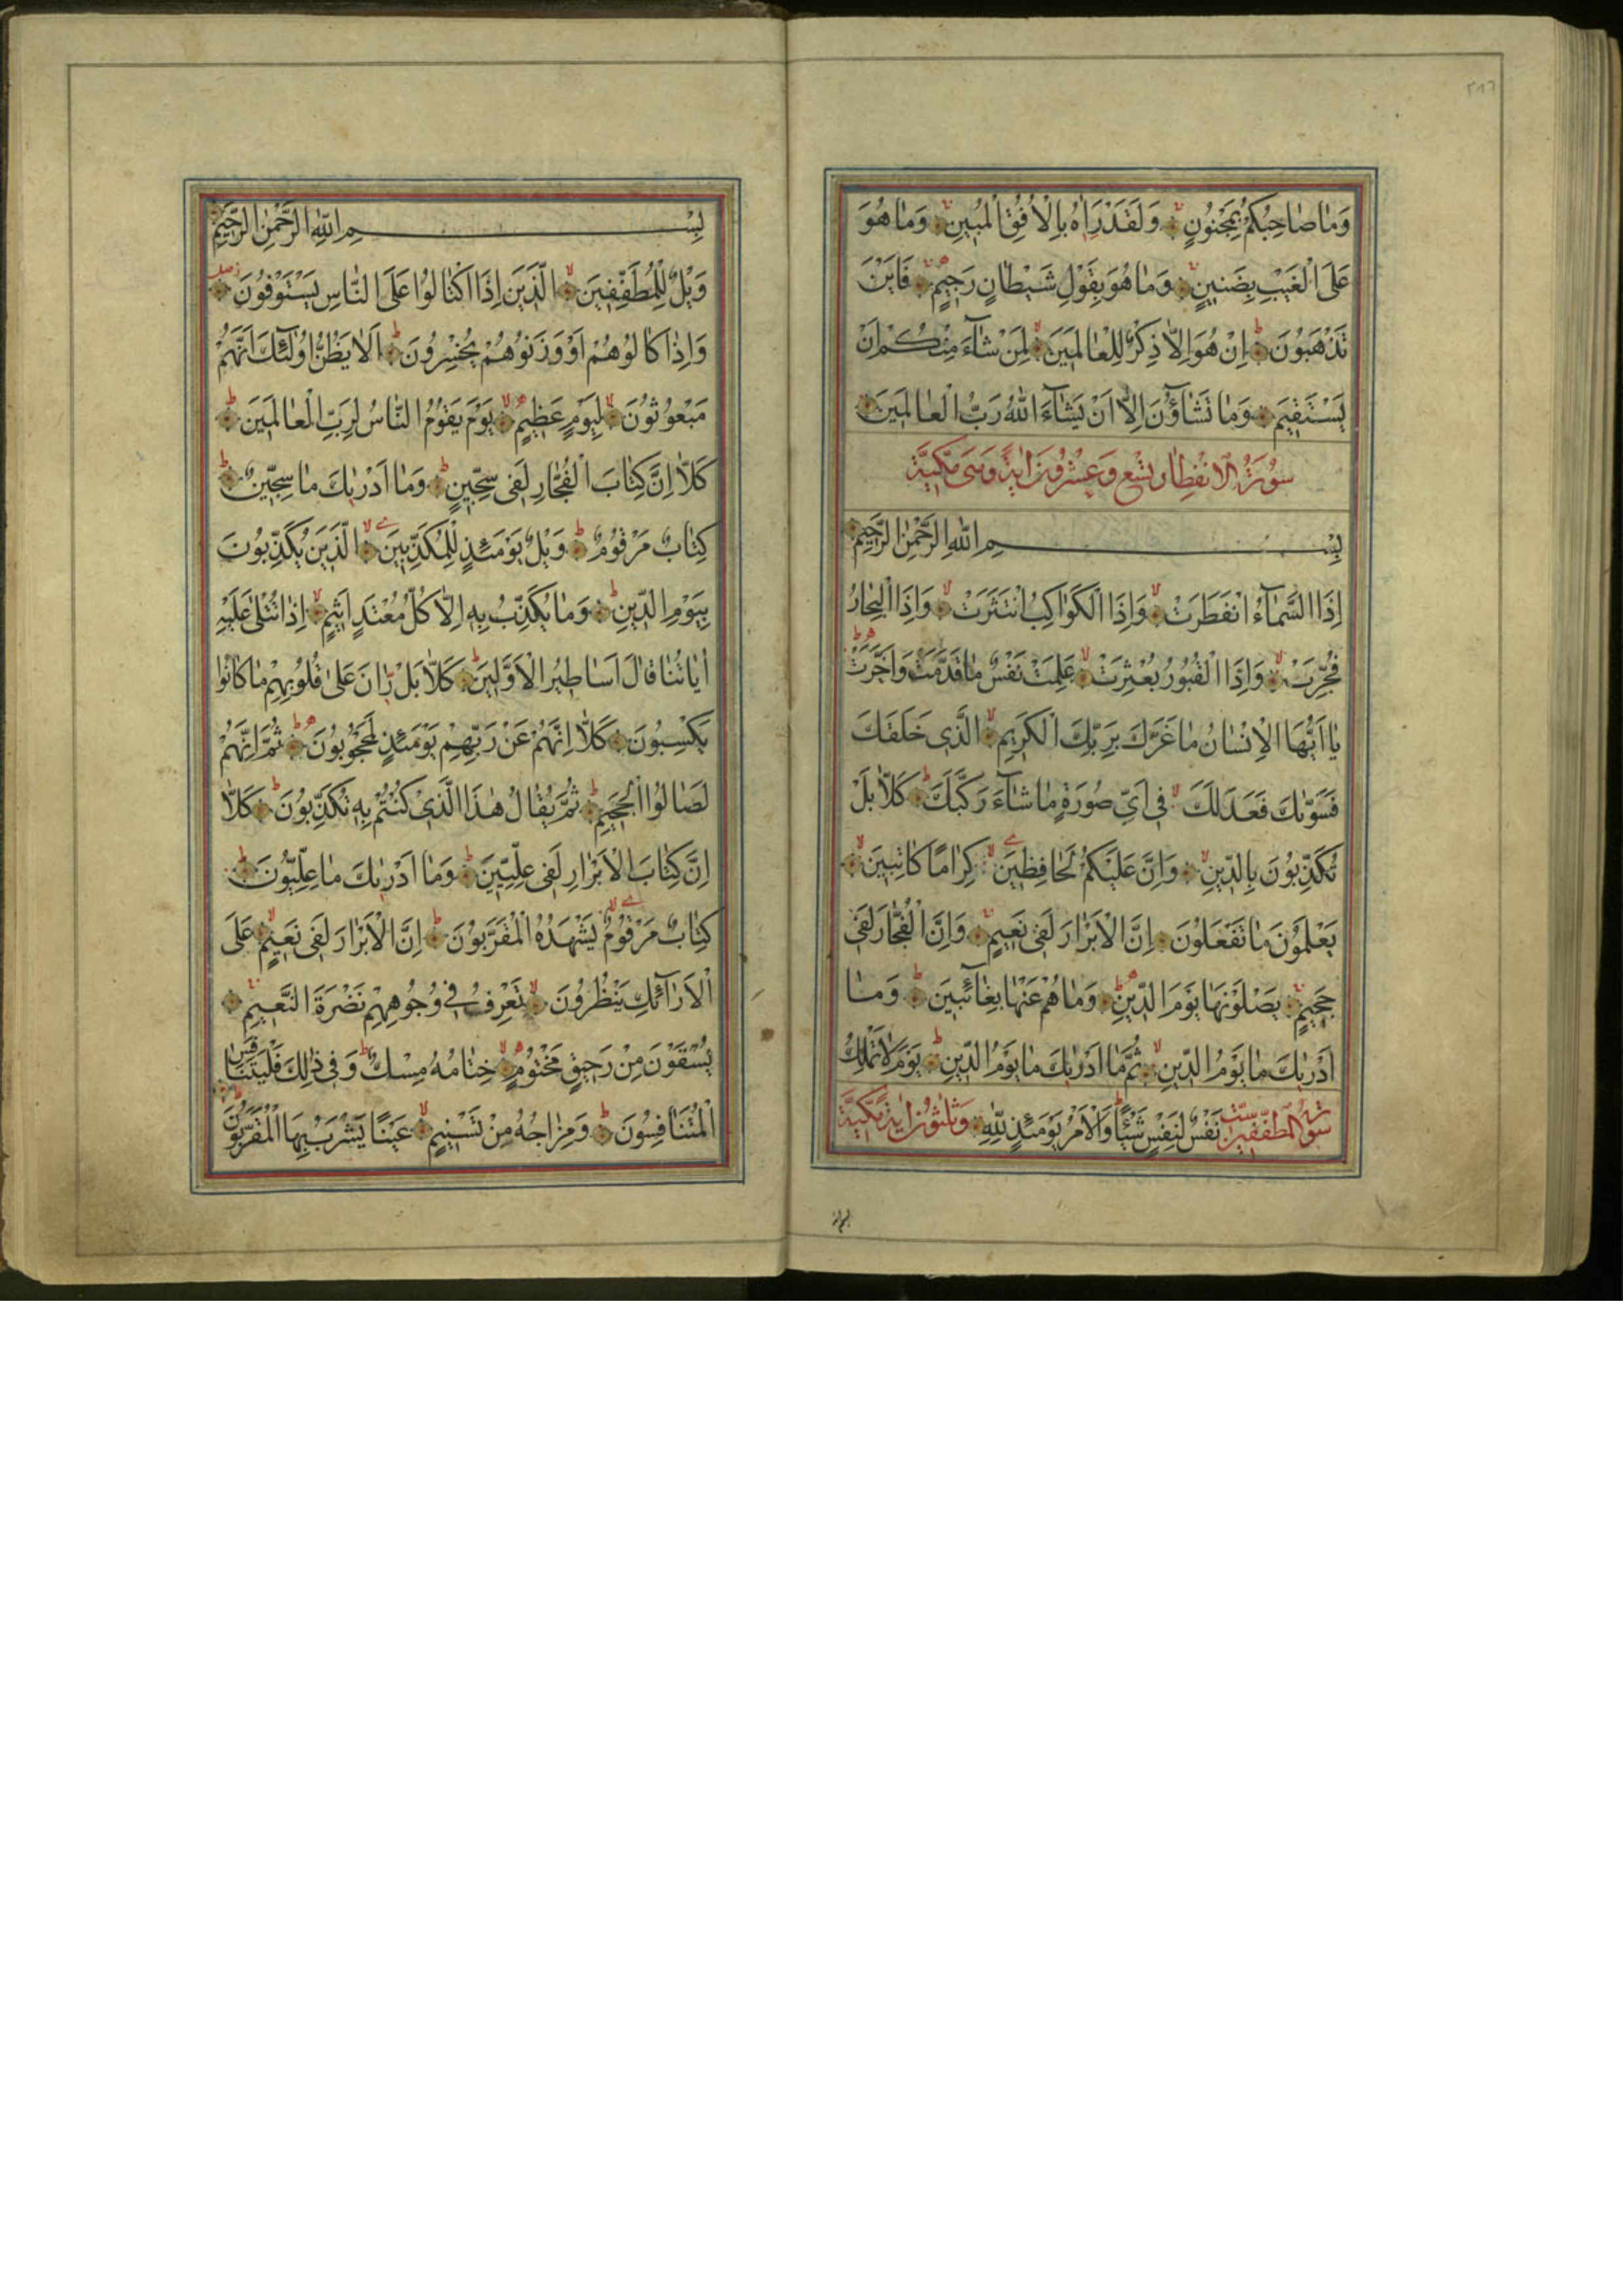 ٢٨٦
وَمَا صَاحِبُكُمْ بِمَجْنُونٍ وَلَقَدْ رَاٰهُ بِالْاُفُقِ الْمُبِينِ وَمَا هُوَ
عَلَى الْغَيْبِ بِضَنِينٍ وَمَا هُوَ بِقَوْلِ شَيْطَانٍ رَجِيمٍ فَاَيْنَ
تَذْهَبُونَ اِنْ هُوَ اِلَّا ذِكْرٌ لِلْعَالَمِينَ لِمَنْ شَآءَ مِنْكُمْ اَنْ
يَسْتَقِيمَ وَمَا تَشَآؤُنَ اِلَّا اَنْ يَشَآءَ اللهُ رَبُّ الْعَالَمِينَ
سُورَةُ الْاِنْفِطَارِ تِسْعَ وَعِشْرُونَ اٰيَةً وَهِيَ مَكِّيَّةٌ
بِسْمِ اللهِ الرَّحْمٰنِ الرَّحِيمِ
اِذَا السَّمَآءُ انْفَطَرَتْ وَاِذَا الْكَوَاكِبُ انْتَثَرَتْ وَاِذَا الْبِحَارُ
فُجِّرَتْ وَاِذَا الْقُبُورُ بُعْثِرَتْ عَلِمَتْ نَفْسٌ مَا قَدَّمَتْ وَاَخَّرَتْ
يَا اَيُّهَا الْاِنْسَانُ مَا غَرَّكَ بِرَبِّكَ الْكَرِيمِ الَّذِى خَلَقَكَ
فَسَوّٰيكَ فَعَدَلَكَ فِى اَىِّ صُورَةٍ مَا شَآءَ رَكَّبَكَ كَلَّا بَلْ
تُكَذِّبُونَ بِالدِّينِ وَاِنَّ عَلَيْكُمْ لَحَافِظِينَ كِرَامًا كَاتِبِينَ
يَعْلَمُونَ مَا تَفْعَلُونَ اِنَّ الْاَبْرَارَ لَفِى نَعِيمٍ وَاِنَّ الْفُجَّارَ لَفِى
جَحِيمٍ يَصْلَوْنَهَا يَوْمَ الدِّينِ وَمَا هُمْ عَنْهَا بِغَآئِبِينَ وَمَا
اَدْرٰيكَ مَا يَوْمُ الدِّينِ ثُمَّ مَا اَدْرٰيكَ مَا يَوْمُ الدِّينِ يَوْمَ لَا تَمْلِكُ
سُورَةُ الْمُطَفِّفِينَ سِتّ نَفْسٌ لِنَفْسٍ شَيْئًا وَالْاَمْرُ يَوْمَئِذٍ لِلّٰهِ وَثَلٰثُونَ اٰيَةً مَكِّيَّةٌ
بِسْمِ اللهِ الرَّحْمٰنِ الرَّحِيمِ
وَيْلٌ لِلْمُطَفِّفِينَ الَّذِينَ اِذَا اكْتَالُوا عَلَى النَّاسِ يَسْتَوْفُونَ
وَاِذَا كَالُوهُمْ اَوْ وَزَنُوهُمْ يُخْسِرُونَ اَلَا يَظُنُّ اُولٰٓئِكَ اَنَّهُمْ
مَبْعُوثُونَ لِيَوْمٍ عَظِيمٍ يَوْمَ يَقُومُ النَّاسُ لِرَبِّ الْعَالَمِينَ
كَلَّا اِنَّ كِتَابَ الْفُجَّارِ لَفِى سِجِّينٍ وَمَا اَدْرٰيكَ مَا سِجِّينٌ
كِتَابٌ مَرْقُومٌ وَيْلٌ يَوْمَئِذٍ لِلْمُكَذِّبِينَ الَّذِينَ يُكَذِّبُونَ
بِيَوْمِ الدِّينِ وَمَا يُكَذِّبُ بِهِ اِلَّا كُلُّ مُعْتَدٍ اَثِيمٍ اِذَا تُتْلٰى عَلَيْهِ
اٰيَاتُنَا قَالَ اَسَاطِيرُ الْاَوَّلِينَ كَلَّا بَلْ رَانَ عَلٰى قُلُوبِهِمْ مَا كَانُوا
يَكْسِبُونَ كَلَّا اِنَّهُمْ عَنْ رَبِّهِمْ يَوْمَئِذٍ لَمَحْجُوبُونَ ثُمَّ اِنَّهُمْ
لَصَالُوا الْجَحِيمِ ثُمَّ يُقَالُ هٰذَا الَّذِى كُنْتُمْ بِهِ تُكَذِّبُونَ كَلَّا
اِنَّ كِتَابَ الْاَبْرَارِ لَفِى عِلِّيِّينَ وَمَا اَدْرٰيكَ مَا عِلِّيُّونَ
كِتَابٌ مَرْقُومٌ يَشْهَدُهُ الْمُقَرَّبُونَ اِنَّ الْاَبْرَارَ لَفِى نَعِيمٍ عَلَى
الْاَرَآئِكِ يَنْظُرُونَ تَعْرِفُ فِى وُجُوهِهِمْ نَضْرَةَ النَّعِيمِ
يُسْقَوْنَ مِنْ رَحِيقٍ مَخْتُومٍ خِتَامُهُ مِسْكٌ وَفِى ذٰلِكَ فَلْيَتَنَافَسِ
الْمُتَنَافِسُونَ وَمِزَاجُهُ مِنْ تَسْنِيمٍ عَيْنًا يَشْرَبُ بِهَا الْمُقَرَّبُونَ